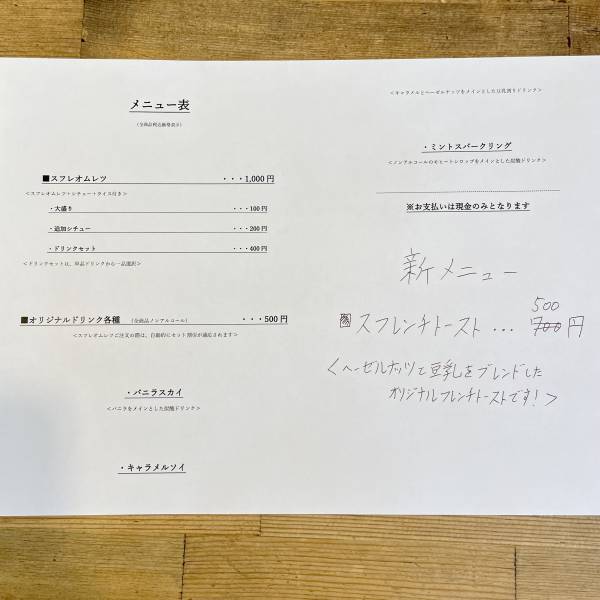 メニュー表
(全商品税込価格表示)
■スフレオムレツ ・・・1,000円
<スフレオムレツ+シチュー+ライス付き>
・大盛り ・・・100円
・追加シチュー ・・・200円
・ドリンクセット ・・・400円
<ドリンクセットは、単品ドリンクから一品選択>
■オリジナルドリンク各種 (全商品ノンアルコール) ・・・500円
<スフレオムレツご注文の際は、自動的にセット割引が適応されます>
・バニラスカイ
<バニラをメインとした炭酸ドリンク>
・キャラメルソイ
<キャラメルとヘーゼルナッツをメインとした豆乳割りドリンク>
・ミントスパークリング
<ノンアルコールのモヒートシロップをメインとした炭酸ドリンク>
※お支払いは現金のみとなります
新メニュー
500
スフレンチトースト ... 700円
<ヘーゼルナッツと豆乳をブレンドした
オリジナルフレンチトーストです!>